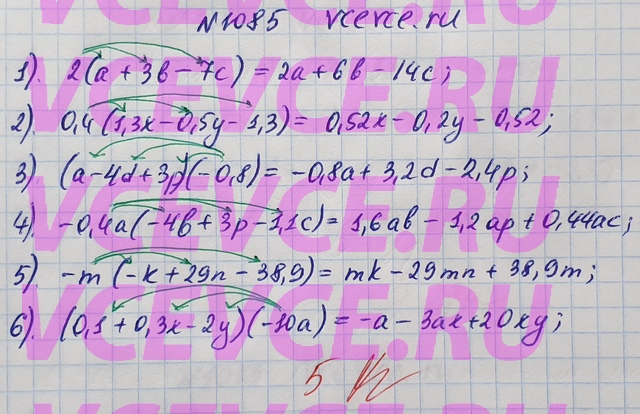 №1085 vcevce.ru
1). 2(a + 3b - 7c) = 2a + 6b - 14c;
2). 0,4(1,3x - 0,5y - 1,3) = 0,52x - 0,2y - 0,52;
3) (a - 4d + 3p)(-0,8) = -0,8a + 3,2d - 2,4p;
4) -0,4a(-4b + 3p - 1,1c) = 1,6ab - 1,2ap + 0,44ac;
5) -m(-k + 29n - 38,9) = mk - 29mn + 38,9m;
6). (0,1 + 0,3x - 2y)(-10a) = -a - 3ax + 20xy;
5
VCEVCE.RU
VCEVCE.RU
VCEVCE.RU